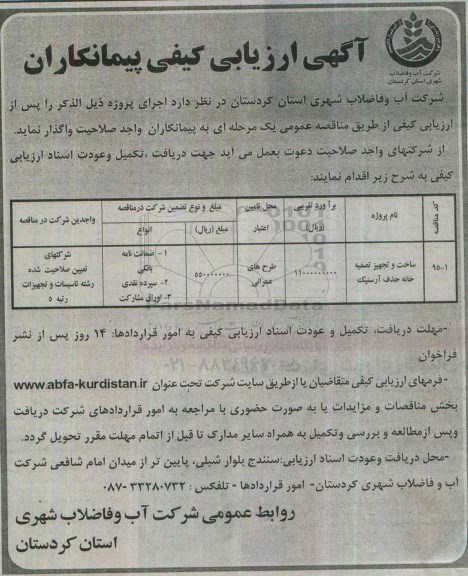 شرکت آب وفاضلاب
شهری استان کردستان
آگهی ارزیابی کیفی پیمانکاران
شرکت آب وفاضلاب شهری استان کردستان در نظر دارد اجرای پروژه ذیل الذکر را پس از
ارزیابی کیفی از طریق مناقصه عمومی یک مرحله ای به پیمانکاران واجد صلاحیت واگذار نماید.
از شرکتهای واجد صلاحیت دعوت بعمل می آید جهت دریافت ،تکمیل وعودت اسناد ارزیابی
کیفی به شرح زیر اقدام نمایند:
کد مناقصه
نام پروژه
برآورد تقریبی (ریال)
محل تامین اعتبار
مبلغ و نوع تضمین شرکت درمناقصه
مبلغ (ریال)
انواع
واجدین شرکت در مناقصه
۹۵-۱
ساخت و تجهیز تصفیه
خانه حذف آرسنیک
۱۱۰۰۰۰۰۰۰۰۰
طرح های
عمرانی
۵۵۰۰۰۰۰۰۰
۱- ضمانت نامه
بانکی
۲- سپرده نقدی
۳-اوراق مشارکت
شرکتهای
تعیین صلاحیت شده
رشته تاسیسات و تجهیزات
رتبه ۵
ParsNamadData
۰۲۱-۸۸۳۴۹۶۷۰
-مهلت دریافت، تکمیل و عودت اسناد ارزیابی کیفی به امور قراردادها: ۱۴ روز پس از نشر
فراخوان
-فرمهای ارزیابی کیفی متقاضیان یا ازطریق سایت شرکت تحت عنوان www.abfa-kurdistan.ir
بخش مناقصات و مزایدات یا به صورت حضوری با مراجعه به امور قراردادهای شرکت دریافت
وپس ازمطالعه و بررسی وتکمیل به همراه سایر مدارک تا قبل از اتمام مهلت مقرر تحویل گردد.
-محل دریافت وعودت اسناد ارزیابی:سنندج بلوار شبلی، پایین تر از میدان امام شافعی شرکت
آب و فاضلاب شهری کردستان- امور قراردادها - تلفکس : ۳۳۲۸۰۷۳۲ -۰۸۷
روابط عمومی شرکت آب وفاضلاب شهری
استان کردستان